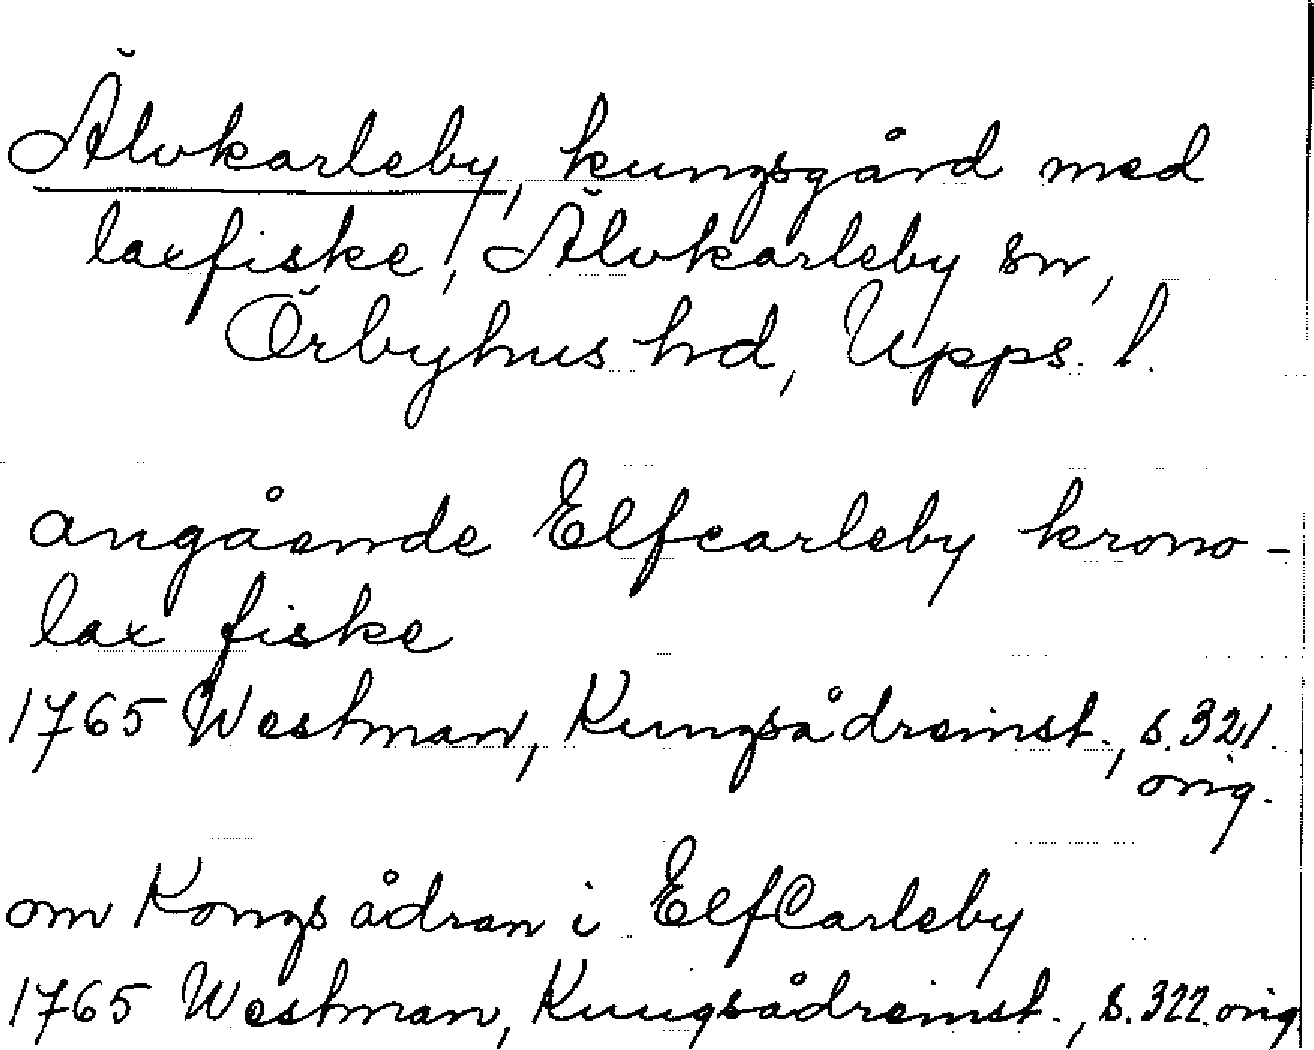 Älvkarleby, kungsgård med
laxfiske, Älvkarleby sn,
Örbyhus hd, Upps. l.
angående Elfcarleby krono-
lax fiske
1765 Westman, Kungsådreinst., s. 321.
orig.
om Kongsådran i ElfCarleby
1765 Westman, Kungsådreinst., s. 322. orig